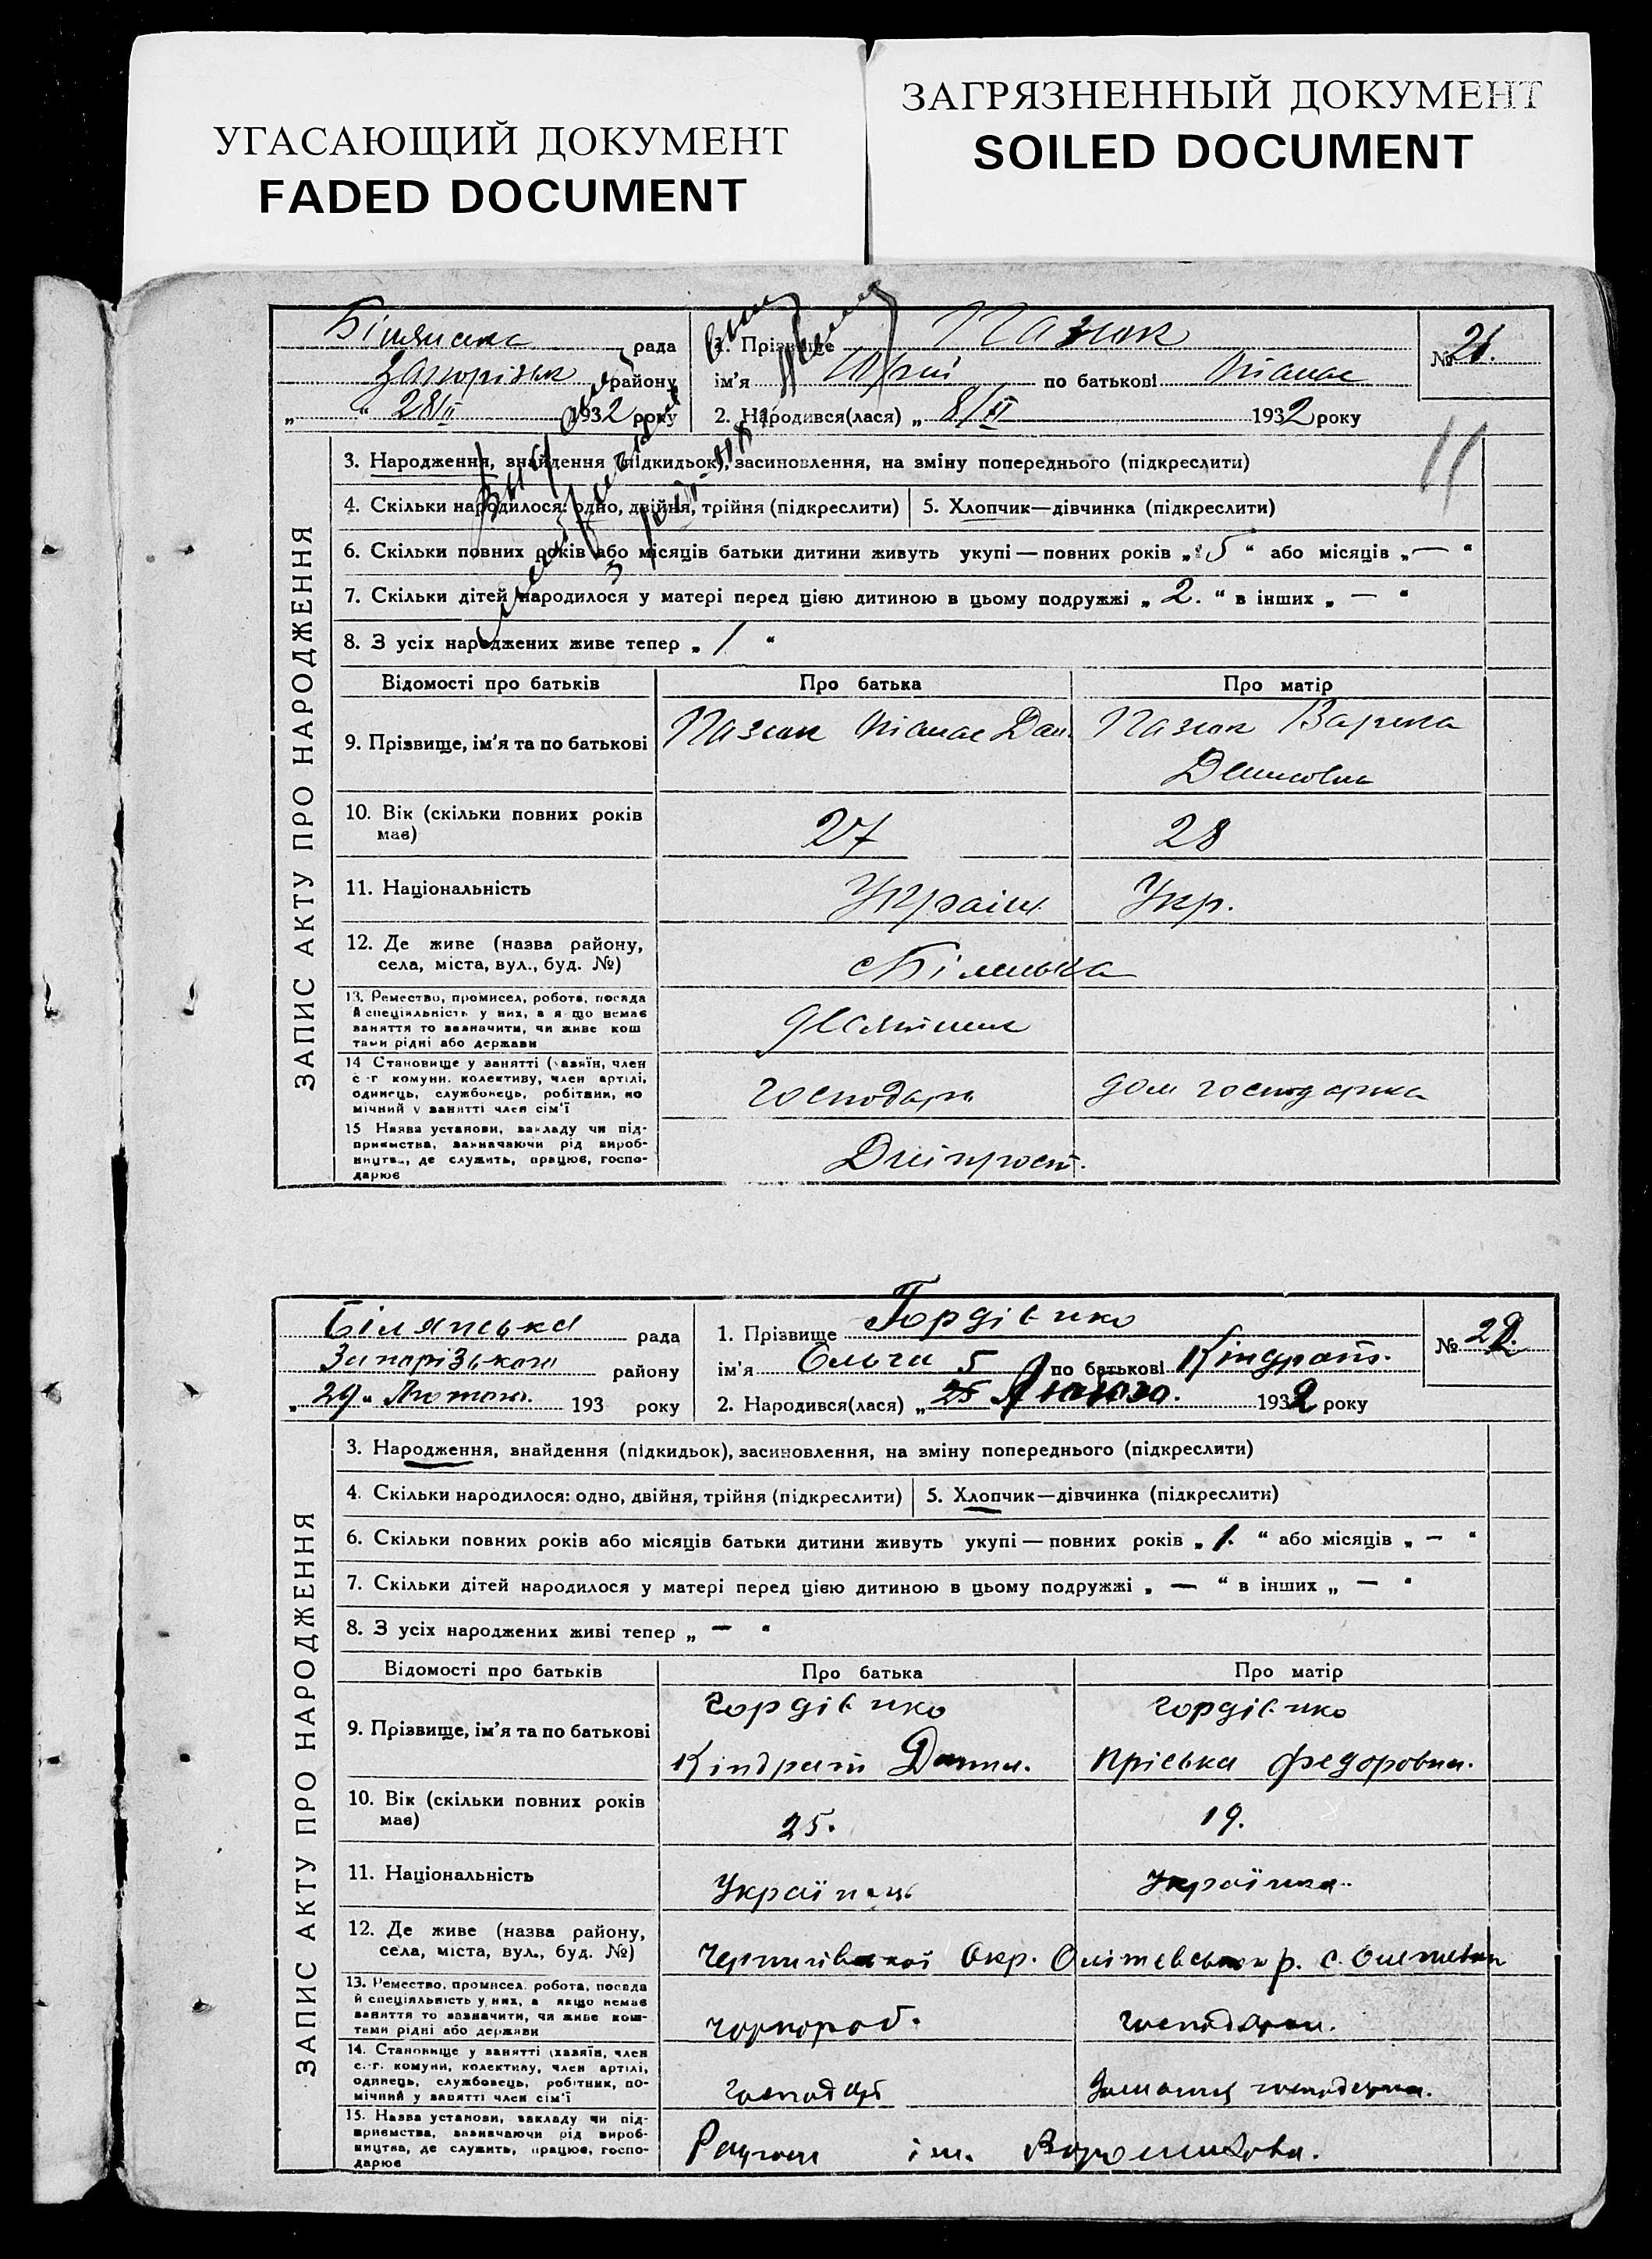 УГАСАЮЩИЙ ДОКУМЕНТ
FADED DOCUMENT
ЗАГРЯЗНЕННЫЙ ДОКУМЕНТ
SOILED DOCUMENT
ЗАПИС АКТУ ПРО НАРОДЖЕННЯ
рада
району
„ “ 28/II 1932 року
1. Прізвище Пазюк
ім’я Юрій по батькові
2. Народився(лася) „ 8/II 1932 року
№ 21.
3. Народження, знайдення (підкидьок), засиновлення, на зміну попереднього (підкреслити)
4. Скільки народилося: одно, двійня, трійня (підкреслити)
5. Хлопчик—дівчинка (підкреслити)
6. Скільки повних років або місяців батьки дитини живуть укупі — повних років „ 5 “ або місяців „ — “
7. Скільки дітей народилося у матері перед цією дитиною в цьому подружжі „ 2. “ в інших „ — “
8. З усіх народжених живе тепер „ 1 “
Відомості про батьків Про батька Про матір
9. Прізвище, ім’я та по батькові Пазюк Дан. Пазюк Варка
Денисовна
10. Вік (скільки повних років має) 27 28
11. Національність Україн. Укр.
12. Де живе (назва району, села, міста, вул., буд. №) с Біленька
13. Ремество, промисел, робота, посада й спеціяльність у них, а якщо немає заняття то зазначити, чи живе коштами рідні або держави
14 Становище у занятті (хазяїн, член с.-г комуни, колективу, член артілі, одинець, службовець, робітник, помічний у занятті член сім’ї господарь дом господарка
15 Назва установи, закладу чи підприємства, зазначаючи рід виробництва, де служить, працює, господарює Дніпрост.
ЗАПИС АКТУ ПРО НАРОДЖЕННЯ
Білянська рада
Запорізького району
„ 29 “ Лютого. 193 року
1. Прізвище Гордієнко
ім’я Ольга по батькові Кіндрат.
2. Народився(лася) „ 25 Лютого. 1932 року
№ 22.
3. Народження, знайдення (підкидьок), засиновлення, на зміну попереднього (підкреслити)
4. Скільки народилося: одно, двійня, трійня (підкреслити)
5. Хлопчик—дівчинка (підкреслити)
6. Скільки повних років або місяців батьки дитини живуть укупі — повних років „ 1. “ або місяців „ — “
7. Скільки дітей народилося у матері перед цією дитиною в цьому подружжі „ — “ в інших „ — “
8. З усіх народжених живі тепер „ — “
Відомості про батьків Про батька Про матір
9. Прізвище, ім’я та по батькові гордієнко гордієнко
Кіндрат Данил. Пріська Федоровна.
10. Вік (скільки повних років має) 25. 19.
11. Національність Українець Українка.
12. Де живе (назва району, села, міста, вул., буд. №) Чернигівської Окр. р. с.
13. Ремество, промисел, робота, посада й спеціяльність у них, а якщо немає заняття то зазначити, чи живе коштами рідні або держави чорнороб. господарка.
14. Становище у занятті (хазяїн, член с.-г. комуни, колективу, член артілі, одинець, службовець, робітник, помічний у занятті член сім’ї господарь домашня господарка.
15. Назва установи, закладу чи підприємства, зазначаючи рід виробництва, де служить, працює, господарює ім. Ворошилова.